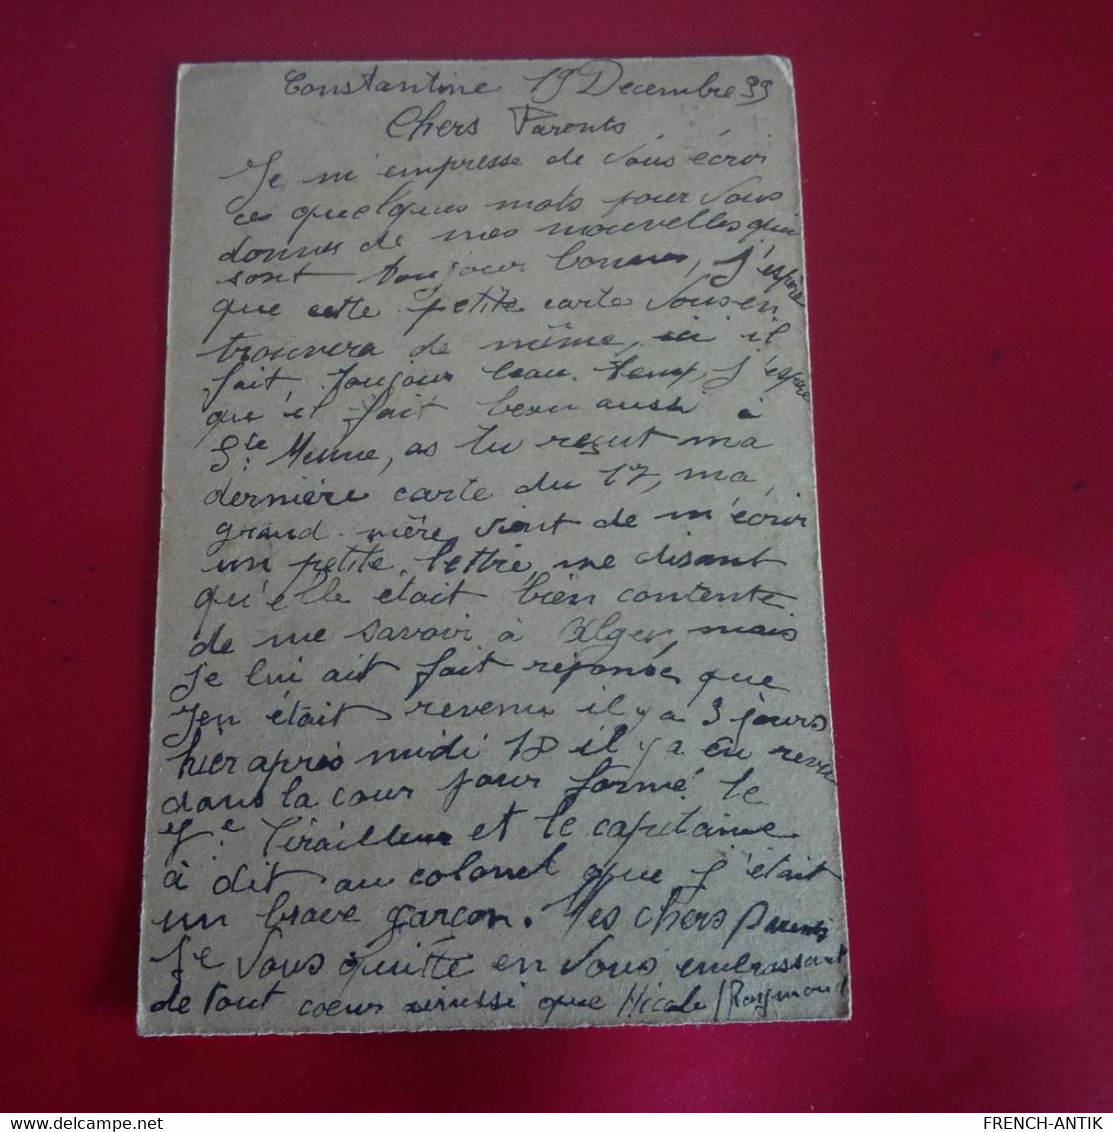 Constantine 19 Decembre 39
Chers Parents
Je m'empresse de vous écrir
ces quelques mots pour vous
donner de mes nouvelles qui
sont toujour bonnes, j'espère
que cette petite carte vous en
trouvera de même, ici il
fait toujour beau temp, j'espère
qu'il fait beau aussi à
Ste, as tu reçut ma
dernière carte du 17, ma
grand-mère vient de m'écrir
un petite lettre, me disant
qu'elle était bien contente
de me savoir à Alger, mais
je lui ait fait réponse que
j'en était revenu il y a 3 jours
hier après midi 18 il y a eu revu
dans la cour pour formé le
7e Tirailleur et le capitaine
à dit au colonel que j'était
un brave garçon. Mes chers parents
Je vous quitte en vous embrassant
de tout coeur ainssi que Nicole Raymond
FRENCH-ANTIK